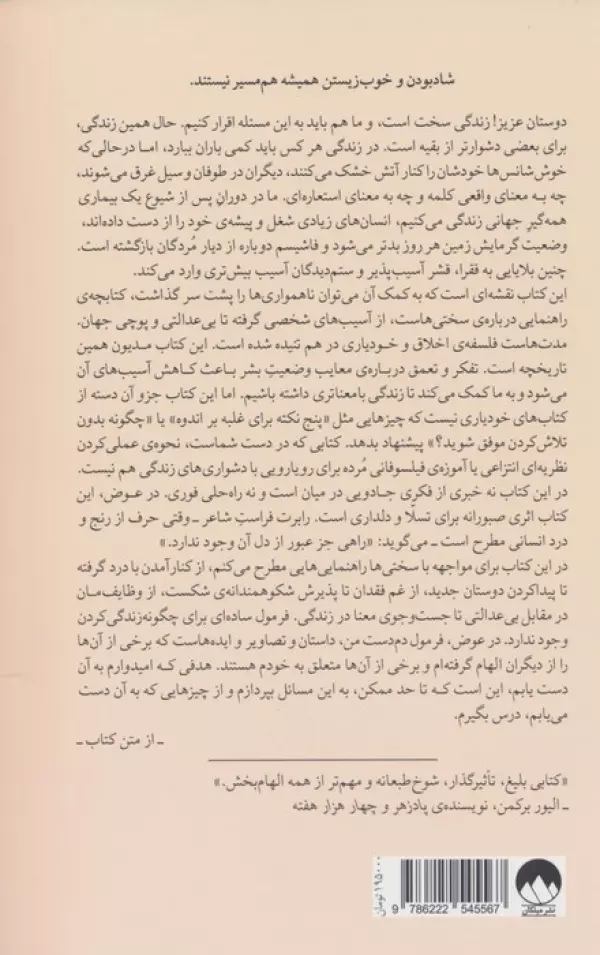 شادبودن و خوب‌زیستن همیشه هم‌مسیر نیستند.
دوستان عزیز! زندگی سخت است، و ما هم باید به این مسئله اقرار کنیم. حال همین زندگی،
برای بعضی دشوارتر از بقیه است. در زندگی هر کس باید کمی باران ببارد، اما درحالی‌که
خوش‌شانس‌ها خودشان را کنار آتش خشک می‌کنند، دیگران در طوفان و سیل غرق می‌شوند،
چه به معنای واقعی کلمه و چه به معنای استعاره‌ای. ما در دوران پس از شیوع یک بیماری
همه‌گیرِ جهانی زندگی می‌کنیم، انسان‌های زیادی شغل و پیشه‌ی خود را از دست داده‌اند،
وضعیت گرمایش زمین هر روز بدتر می‌شود و فاشیسم دوباره از دیار مُردگان بازگشته است.
چنین بلایایی به فقرا، قشر آسیب‌پذیر و ستم‌دیدگان آسیب بیش‌تری وارد می‌کند.
این کتاب نقشه‌ای است که به کمک آن می‌توان ناهمواری‌ها را پشت سر گذاشت، کتابچه‌ی
راهنمایی درباره‌ی سختی‌هاست، از آسیب‌های شخصی گرفته تا بی‌عدالتی و پوچی جهان.
مدت‌هاست فلسفه‌ی اخلاق و خودیاری در هم تنیده شده است. این کتاب مدیون همین
تاریخچه است. تفکر و تعمق درباره‌ی معایب وضعیتِ بشر باعث کاهش آسیب‌های آن
می‌شود و به ما کمک می‌کند تا زندگی بامعناتری داشته باشیم. اما این کتاب جزو آن دسته از
کتاب‌های خودیاری نیست که چیزهایی مثل «پنج نکته برای غلبه بر اندوه» یا «چگونه بدون
تلاش‌کردن موفق شوید؟» پیشنهاد بدهد. کتابی که در دست شماست، نحوه‌ی عملی‌کردن
نظریه‌ای انتزاعی یا آموزه‌ی فیلسوفانی مُرده برای رویارویی با دشواری‌های زندگی هم نیست.
در این کتاب نه خبری از فکری جادویی در میان است و نه راه‌حلی فوری. در عوض، این
کتاب اثری صبورانه برای تسلّا و دلداری است. رابرت فراستِ شاعر ـ وقتی حرف از رنج و
درد انسانی مطرح است ـ می‌گوید: «راهی جز عبور از دل آن وجود ندارد.»
در این کتاب برای مواجهه با سختی‌ها راهنمایی‌هایی مطرح می‌کنم، از کنارآمدن با درد گرفته
تا پیداکردن دوستان جدید، از غم فقدان تا پذیرش شکوهمندانه‌ی شکست، از وظایف‌مان
در مقابل بی‌عدالتی تا جست‌وجوی معنا در زندگی. فرمول ساده‌ای برای چگونه‌زندگی‌کردن
وجود ندارد. در عوض، فرمول دم‌دست من، داستان و تصاویر و ایده‌هاست که برخی از آن‌ها
را از دیگران الهام گرفته‌ام و برخی از آن‌ها متعلق به خودم هستند. هدفی که امیدوارم به آن
دست یابم، این است که تا حد ممکن، به این مسائل بپردازم و از چیزهایی که به آن دست
می‌یابم، درس بگیرم.
ـ از متن کتاب ـ
«کتابی بلیغ، تأثیرگذار، شوخ‌طبعانه و مهم‌تر از همه الهام‌بخش.»
ـ الیور برکمن، نویسنده‌ی پادزهر و چهار هزار هفته
۱۹۵۰۰۰ تومان
9 786222 545567
نشر میلکان